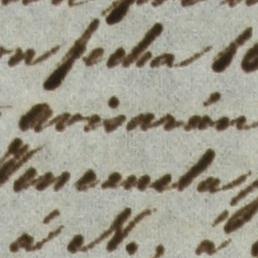 on fecha 16
avisarán
Venezuela
á N., á